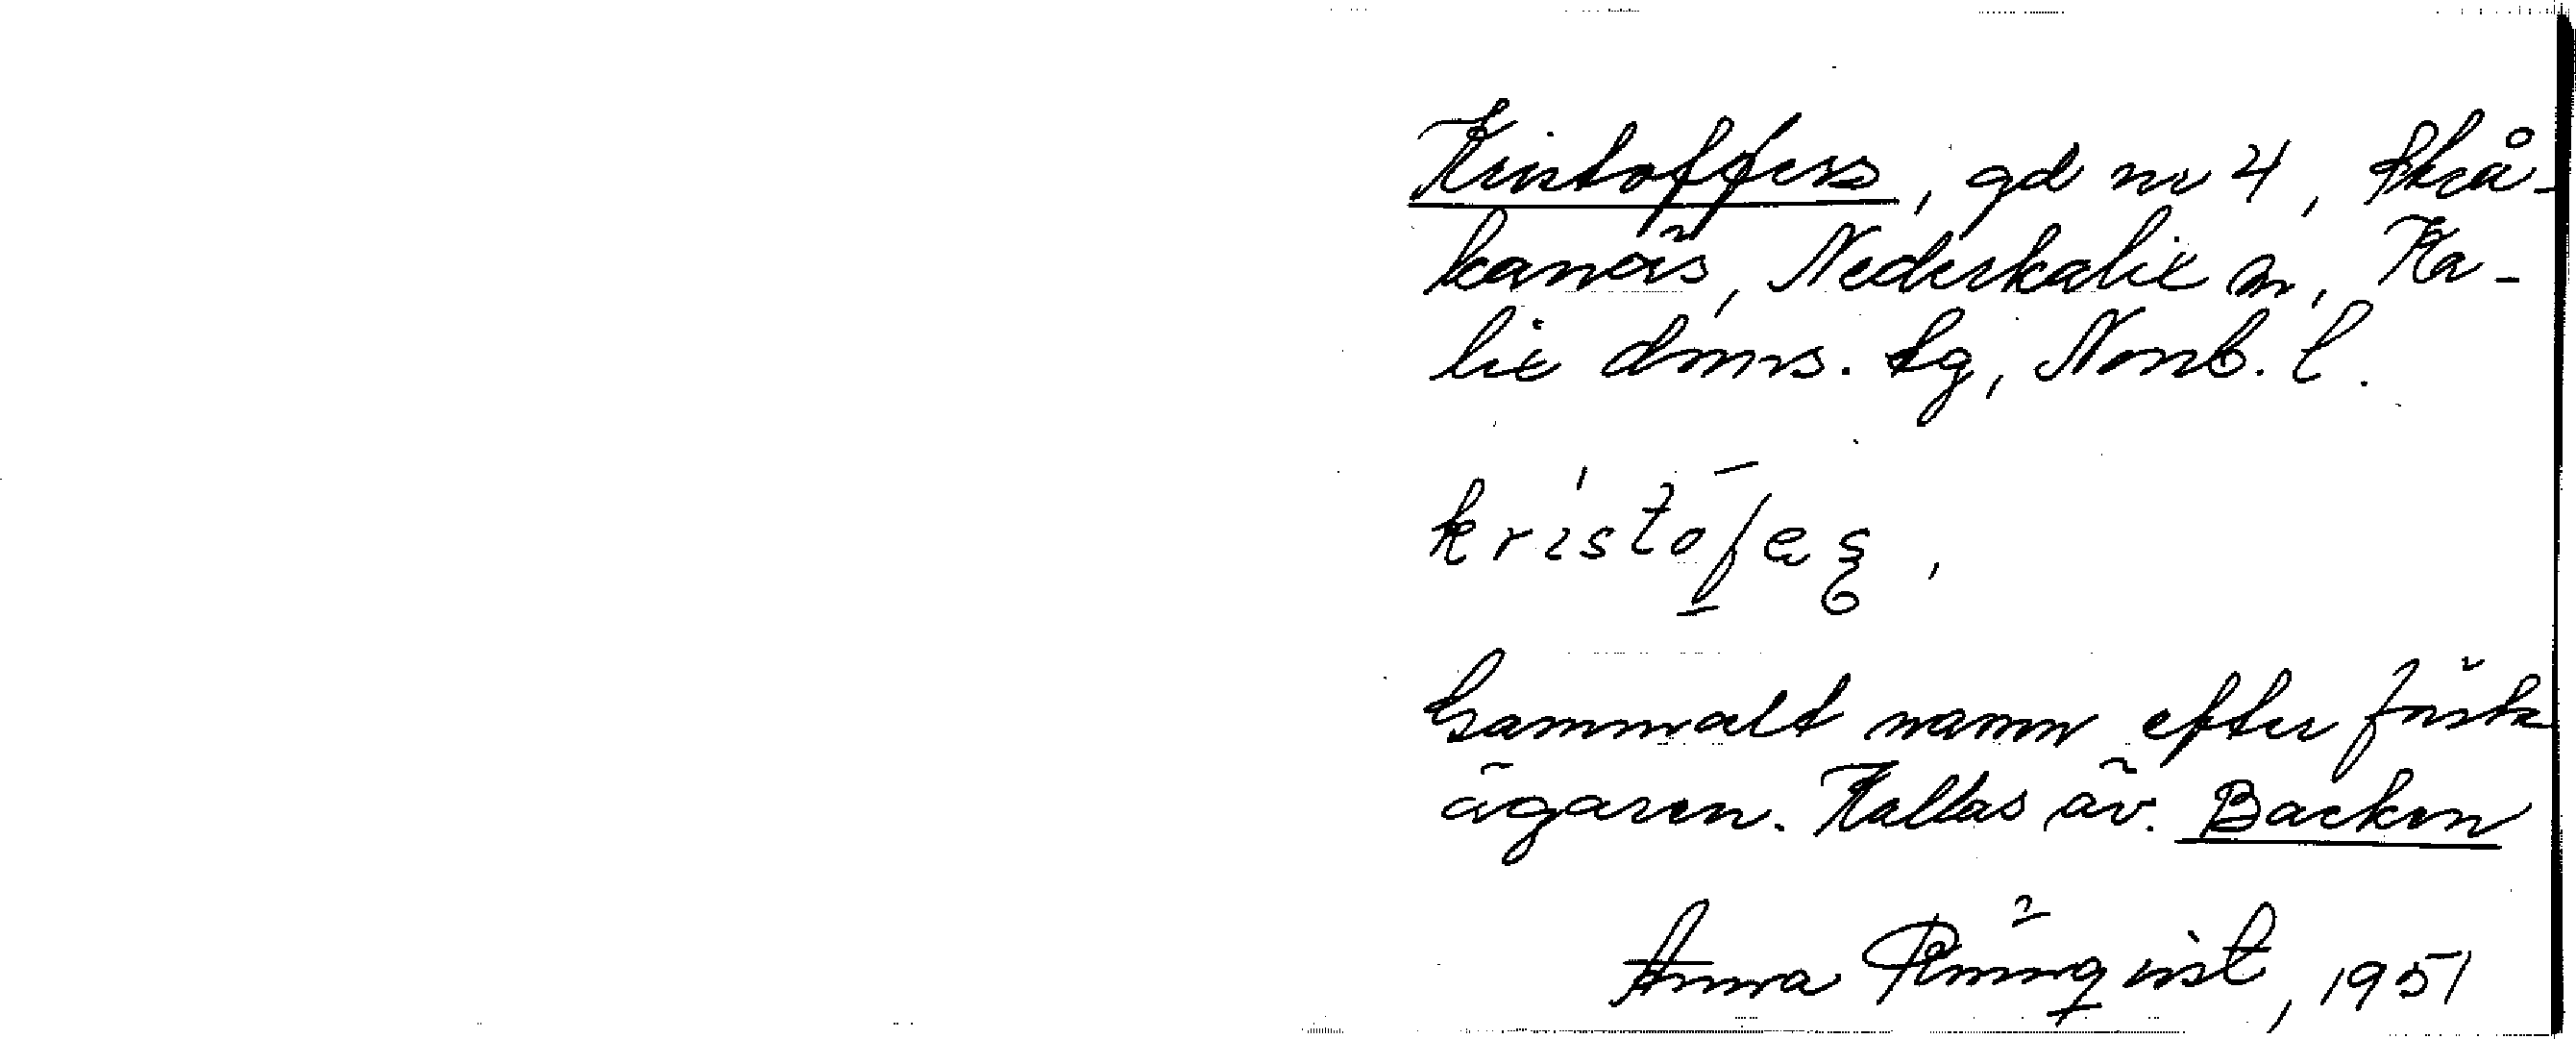 Kristoffers, gd nr 4, Strå-
kanäs, Nederkalix sn, Ka-
lix doms. tg, Norrb. l.
kristofas,
Gammalt namn efter första
ägaren. Kallas äv. Backen
Anna Rönnqvist, 1951